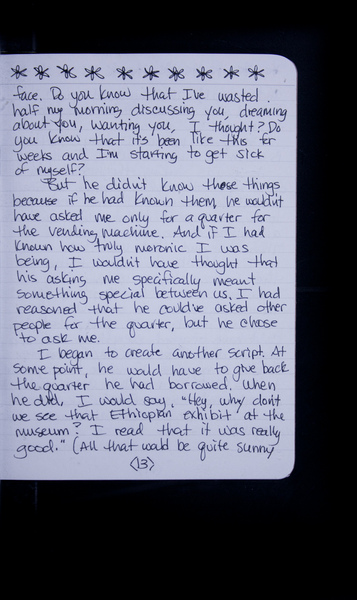 face. Do you know that I've wasted
half my morning discussing you, dreaming
about you, wanting you, I thought? Do
you know that it's been like this for
weeks and I'm starting to get sick
of myself?
But he didn't know those things
because if he had known them, he wouldn't
have asked me only for a quarter for
the vending machine. And if I had
known how truly moronic I was
being, I wouldn't have thought that
his asking me specifically meant
something special between us. I had
reasoned that he could've asked other
people for the quarter, but he chose
to ask me.
I began to create another script. At
some point, he would have to give back
the quarter he had borrowed. When
he did, I would say, "Hey, why don't
we see that Ethiopian exhibit at the
museum? I read that it was really
good." (All that would be quite sunny
<13>